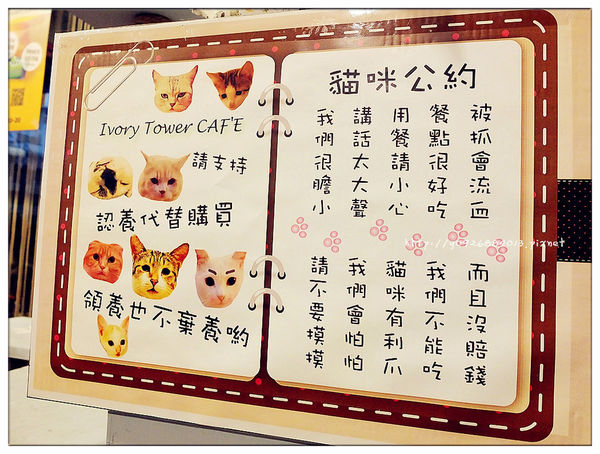 Ivory Tower CAF'E
請支持
認養代替購買
領養也不棄養喲
貓咪公約
被抓會流血
而且沒賠錢
餐點很好吃
我們不能吃
用餐請小心
貓咪有利爪
講話太大聲
我們會怕怕
我們很膽小
請不要摸摸